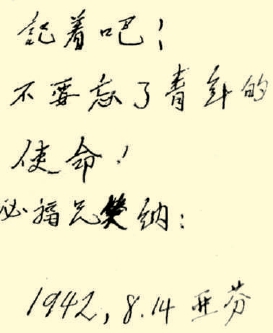 記着吧！
不要忘了青年的
使命！
必搢兄笑纳：
1942, 8.14 亚芬